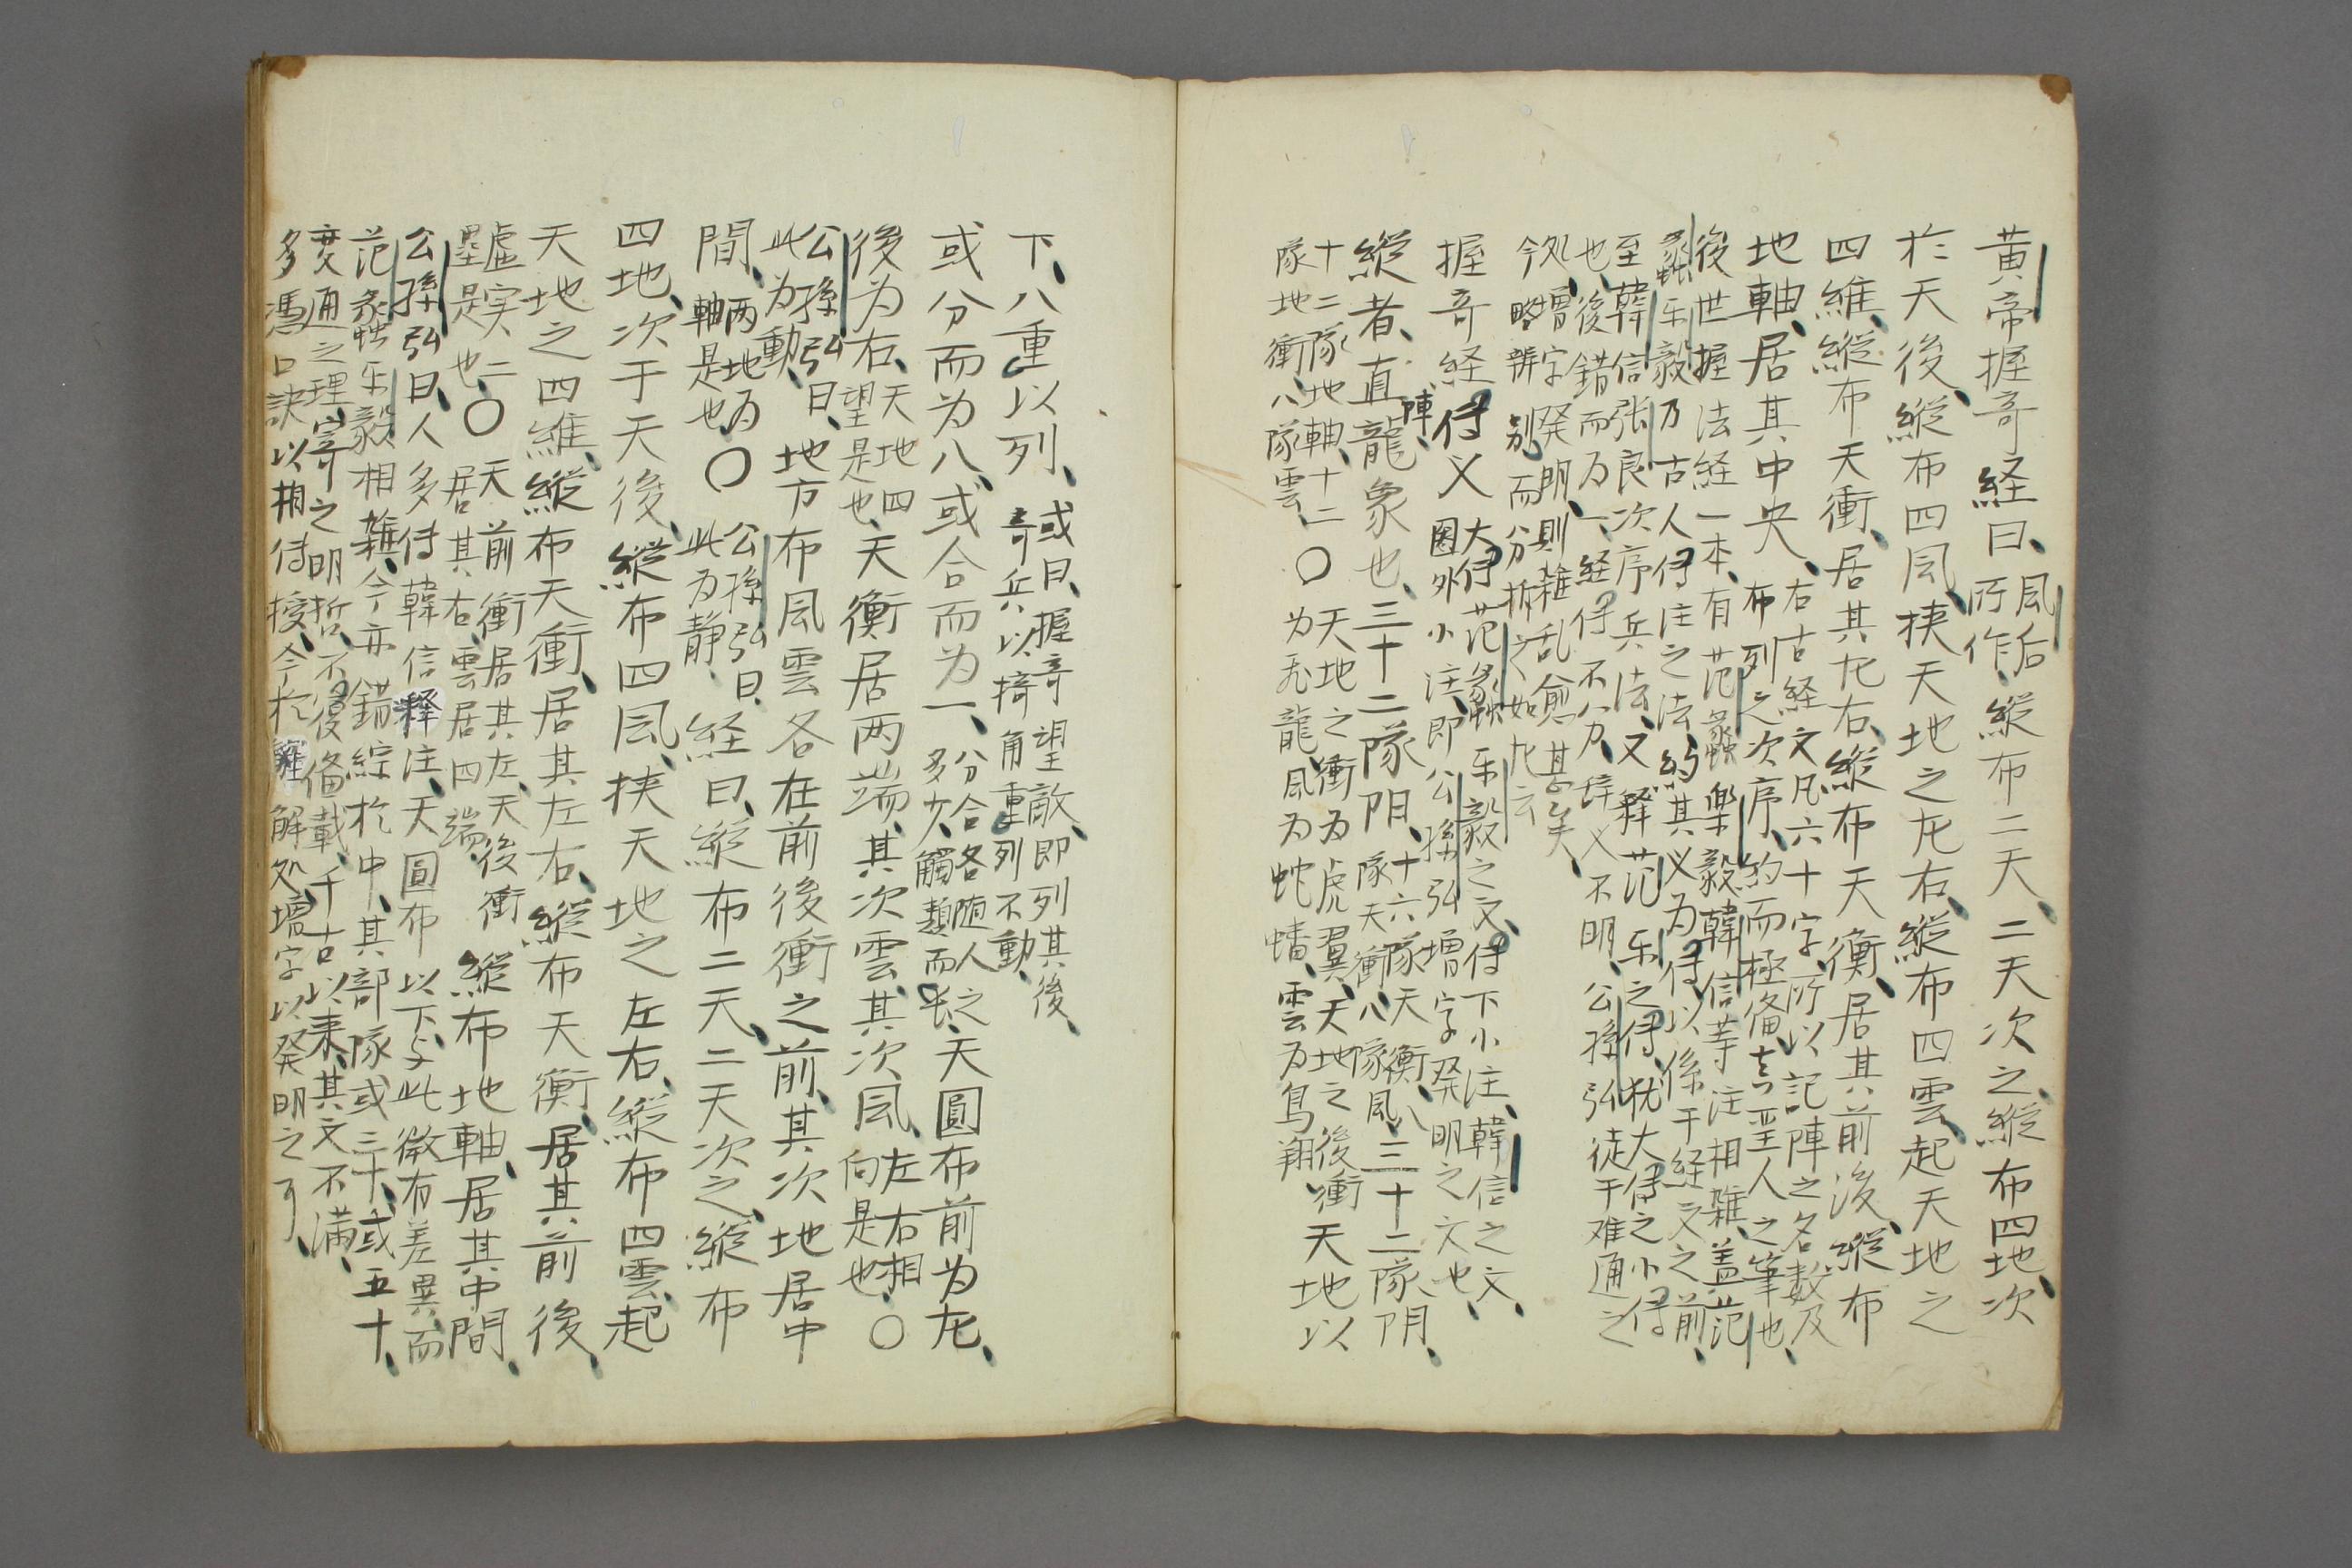 黄帝握奇経曰、風后所作、縦布二天、二天次之、縦布四地、次
於天後、縦布四風、挟天地之左右、縦布四雲、起天地之
四維、縦布天衝、居其左右、縦布天衡、居其前後、縦布
地軸、居其中央、右古経文凡六十字、所以記陣之名数及
布列之次序、約而極備、真聖人之筆也、
後世握法経一本、有范蠡楽毅韓信等注相雑、盖范
蠡乐毅乃古人伝注之法、約其义为伝、以係于経文之前、
至韓信张良次序兵法、又释范乐之伝、犹大伝之小伝
也、後錯而为一、経伝不分、辞义不明、公孫弘徒于难通之
処、増字発明、則雑乱愈甚矣、
今略辨别而分拆之、如左云
握奇経陣、伝义大伝范蠡乐毅之文、伝下小注、韓信之文、
圏外小注、即公孫弘増字発明之文也、
縦者、直龍象也、三十二隊阳、十六隊天衡、八
隊天衝、八隊風、三十二隊阴、
十二隊地軸、十二
隊地衝、八隊雲、〇天地之衝为虎翼、天地之後衝
为飛龍、風为蛇蟠、雲为鸟翔、天地以
下、八重以列、或曰、握奇望敵、即列其後、
奇兵以掎角重列不動、
或分而为八、或合而为一、分合各随人之
多少、觸類而长、天圓布前为左、
後为右、天地四
望是也、天衡居两端、其次雲、其次風、左右相
向是也、〇
公孫弘曰、地方布風雲各在前後衝之前、其次地居中
此为動、
間、两地为
軸是也、〇公孫弘曰、
此为静、経曰、縦布二天、二天次之、縦布
四地、次于天後、縦布四風、挟天地之左右、縦布四雲、起
天地之四維、縦布天衝、居其左右、縦布天衡、居其前後、
虚実二
壘是也、〇天前衝居其左、天後衝
居其右、雲居四端、縦布地軸、居其中間、
公孫弘曰、人多伝韓信释注、天圓布以下、与此微有差異、而
范蠡乐毅相雑、今亦錯綜於中、其部隊或三十、或五十、
变通之理、寄之明哲、不復备載、千古以来、其文不満、
多馮口訣以相伝授、今於難解処、増字以発明之耳、